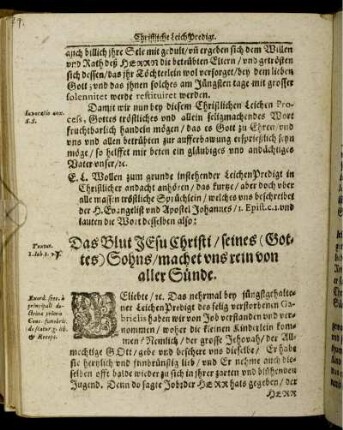 Christliche LeichPredigt.
auch billich jhre Sele mit gedult / vñ ergeben sich dem Willen
vnd Rath deß HERRN die betrübten Eltern / vnd getrösten
sich dessen / das jhr Töchterlein wol versorget / bey dem lieben
Gott / vnd das jhnen solches am Jüngsten tage mit grosser
solennitet werde restituiret werden.
Damit wir nun bey diesem Christlichen Leichen Pro-
cess, Gottes tröstliches vnd allein seligmachendes Wort
fruchtbarlich handeln mögen / das es Gott zu Ehren / vnd
vns vnd allen betrübten zur aufferbawung ersprießlich seyn
möge / so helffet mir beten ein gläubiges vnd andächtiges
Vater vnser / rc.
E. L. Wollen zum grunde instehender LeichenPredigt in
Christlicher andacht anhören / das kurtze / aber doch vber
alle massen tröstliche Sprüchlein / welches vns beschreibet
der H. Evangelist vnd Apostel Johannes / 1. Epist. c. 1. vnd
lauten die Wort desselben also:
Das Blut JEsu Christi / seines (Got-
tes) Sohns / machet vns rein von
aller Sünde.
GEliebte / rc. Das nehrmal bey jüngstgehalte-
ner LeichenPredigt des selig verstorbenen Ga-
brielis haben wir von Job verstanden vnd ver-
nommen / woher die kleinen Kinderlein kom-
men / Nemlich / der grosse Jehovah / der All-
mechtige GOtt / gebe vnd beschere vns dieselbe / Er habe
sie hertzlich vnd jnnbrünstig lieb / vnd Er neme auch die-
selben offt balde wieder zu sich in jhrer zarten vnd blühenden
Jugend. Denn do sagte Job: der HERR hats gegeben / der
HERR